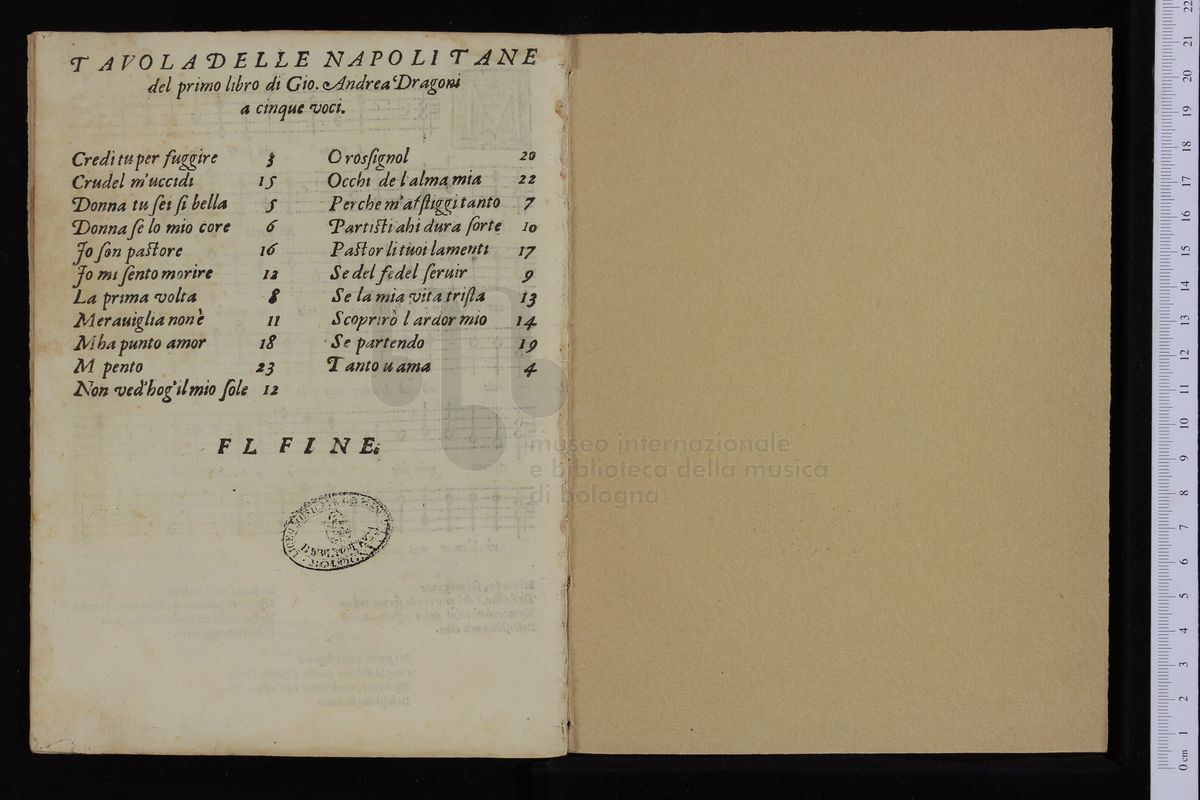 TAVOLA DELLE NAPOLITANE
del primo libro di Gio. Andrea Dragoni
a cinque voci.
Credi tu per fuggire 3
Crudel m'uccidi 15
Donna tu sei si bella 5
Donna se lo mio core 6
Jo son pastore 16
Jo mi sento morire 12
La prima volta 8
Merauiglia non è 11
M ha punto amor 18
M pento 23
Non ved'hog'il mio sole 12
O rossignol 20
Occhi de l'alma mia 22
Perche m'afsliggi tanto 7
Partisti ahi dura sorte 10
Pastor li tuoi lamenti 17
Se del fedel seruir 9
Se la mia vita trista 13
Scoprirò l ardor mio 14
Se partendo 19
Tanto u ama 4
FL FINE.
LICEO MUSICALE
BIBLIOTECA
BOLOGNA
museo internazionale
e biblioteca della musica
di bologna
0 cm 1 2 3 4 5 6 7 8 9 10 11 12 13 14 15 16 17 18 19 20 21 22